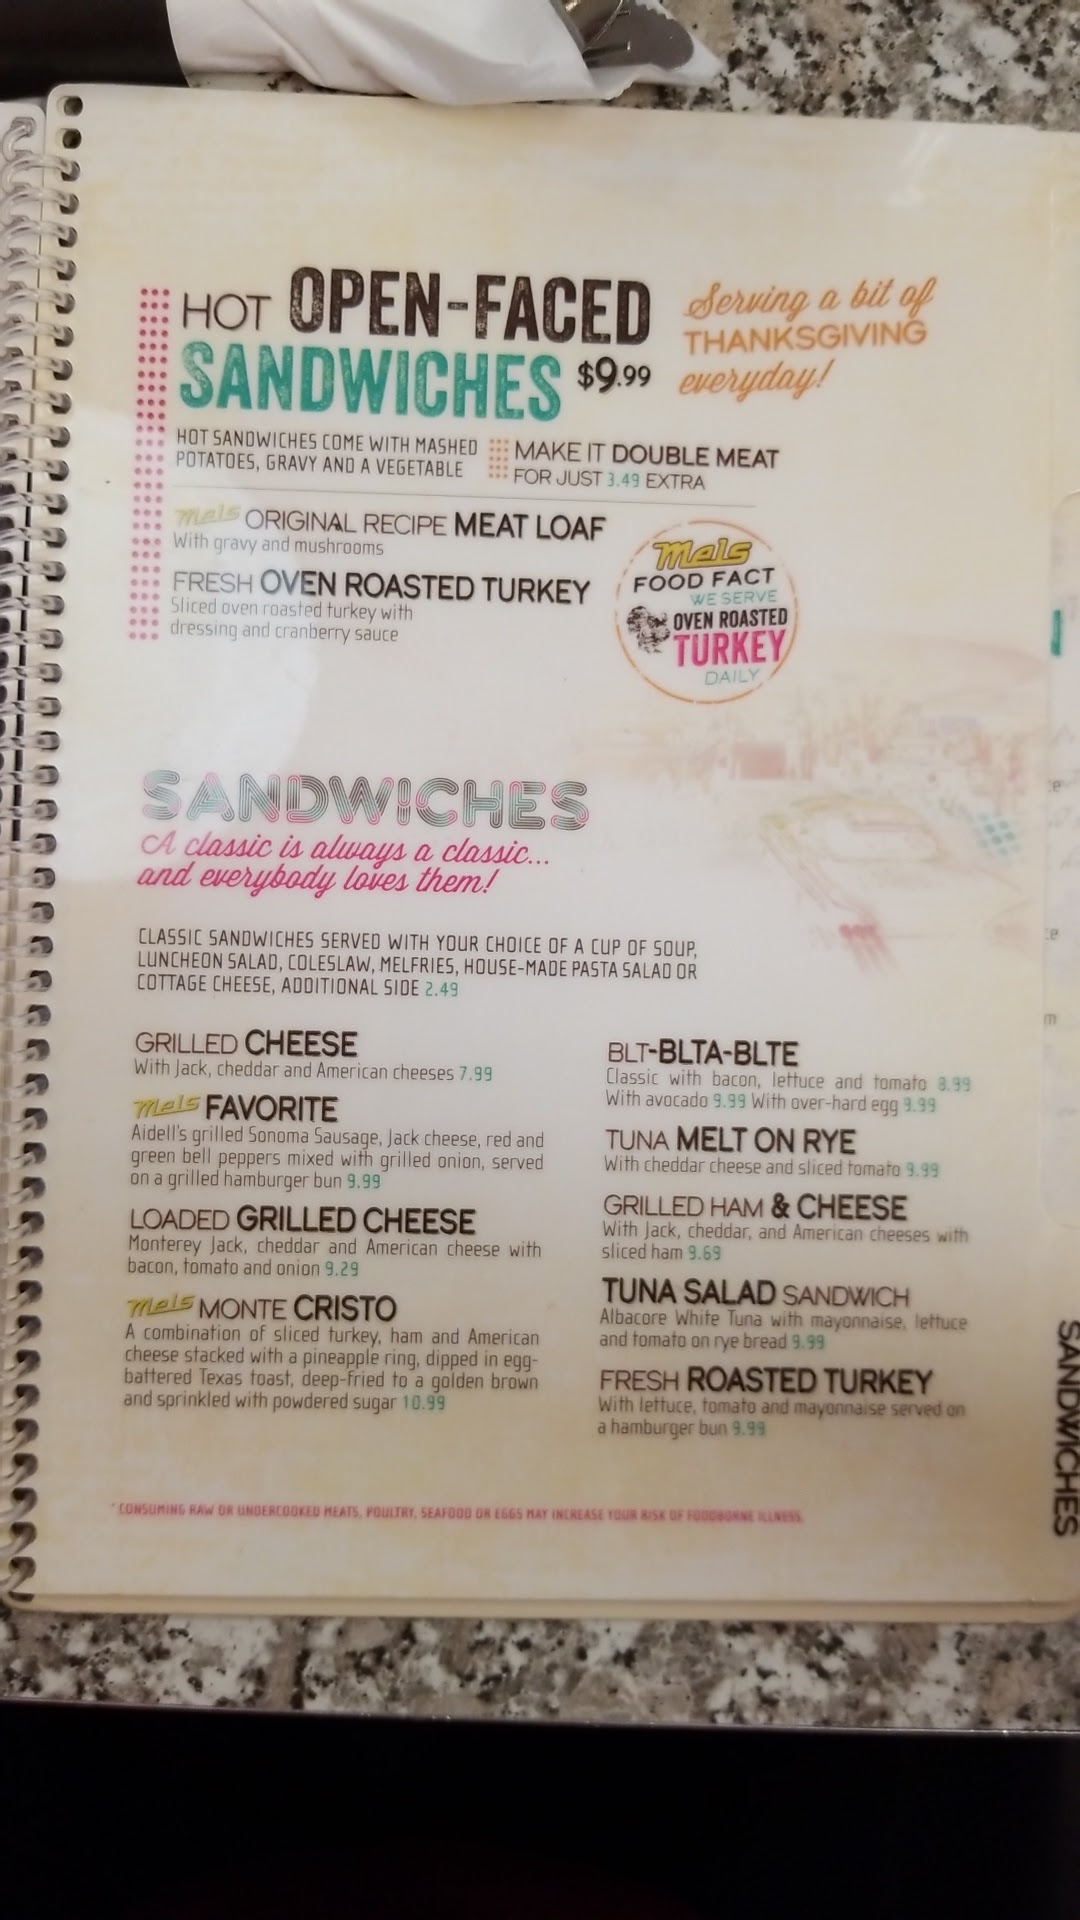 HOT OPEN-FACED
SANDWICHES $9.99
Serving a bit of
THANKSGIVING
everyday!
HOT SANDWICHES COME WITH MASHED
POTATOES, GRAVY AND A VEGETABLE
MAKE IT DOUBLE MEAT
FOR JUST 3.49 EXTRA
Mels ORIGINAL RECIPE MEAT LOAF
With gravy and mushrooms
FRESH OVEN ROASTED TURKEY
Sliced oven roasted turkey with
dressing and cranberry sauce
Mels
FOOD FACT
WE SERVE
OVEN ROASTED
TURKEY
DAILY
SANDWICHES
A classic is always a classic...
and everybody loves them!
CLASSIC SANDWICHES SERVED WITH YOUR CHOICE OF A CUP OF SOUP,
LUNCHEON SALAD, COLESLAW, MELFRIES, HOUSE-MADE PASTA SALAD OR
COTTAGE CHEESE, ADDITIONAL SIDE 2.49
GRILLED CHEESE
With Jack, cheddar and American cheeses 7.99
Mels FAVORITE
Aidell's grilled Sonoma Sausage, Jack cheese, red and
green bell peppers mixed with grilled onion, served
on a grilled hamburger bun 9.99
LOADED GRILLED CHEESE
Monterey Jack, cheddar and American cheese with
bacon, tomato and onion 9.29
Mels MONTE CRISTO
A combination of sliced turkey, ham and American
cheese stacked with a pineapple ring, dipped in egg-
battered Texas toast, deep-fried to a golden brown
and sprinkled with powdered sugar 10.99
BLT-BLTA-BLTE
Classic with bacon, lettuce and tomato 8.99
With avocado 9.99 With over-hard egg 9.99
TUNA MELT ON RYE
With cheddar cheese and sliced tomato 9.99
GRILLED HAM & CHEESE
With Jack, cheddar, and American cheeses with
sliced ham 9.69
TUNA SALAD SANDWICH
Albacore White Tuna with mayonnaise, lettuce
and tomato on rye bread 9.99
FRESH ROASTED TURKEY
With lettuce, tomato and mayonnaise served on
a hamburger bun 9.99
* CONSUMING RAW OR UNDERCOOKED MEATS, POULTRY, SEAFOOD OR EGGS MAY INCREASE YOUR RISK OF FOODBORNE ILLNESS.
SANDWICHES